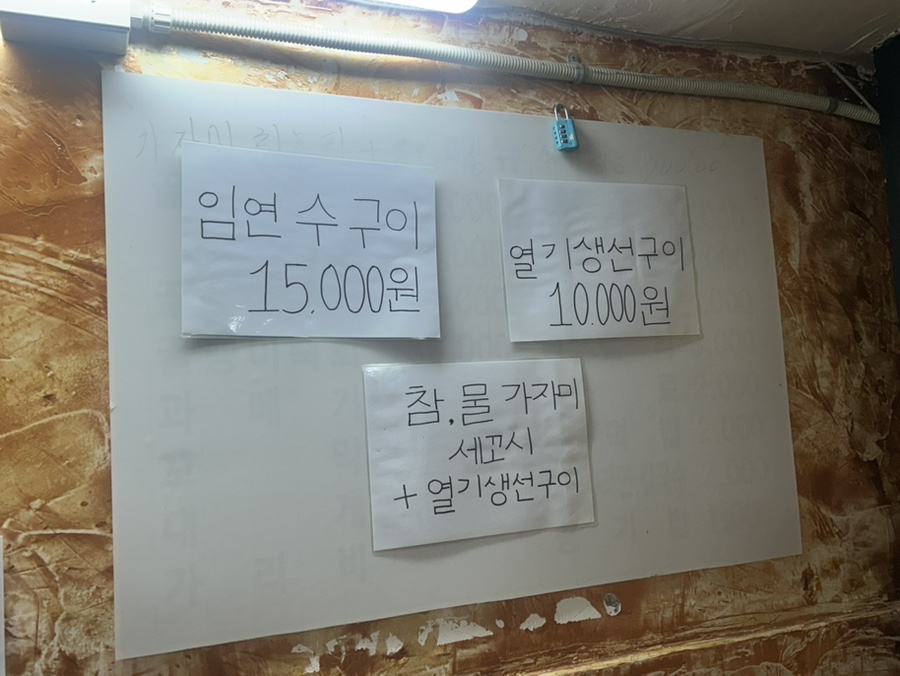 임연수구이
15.000원
열기생선구이
10.000원
참,물 가자미
세꼬시
+ 열기생선구이